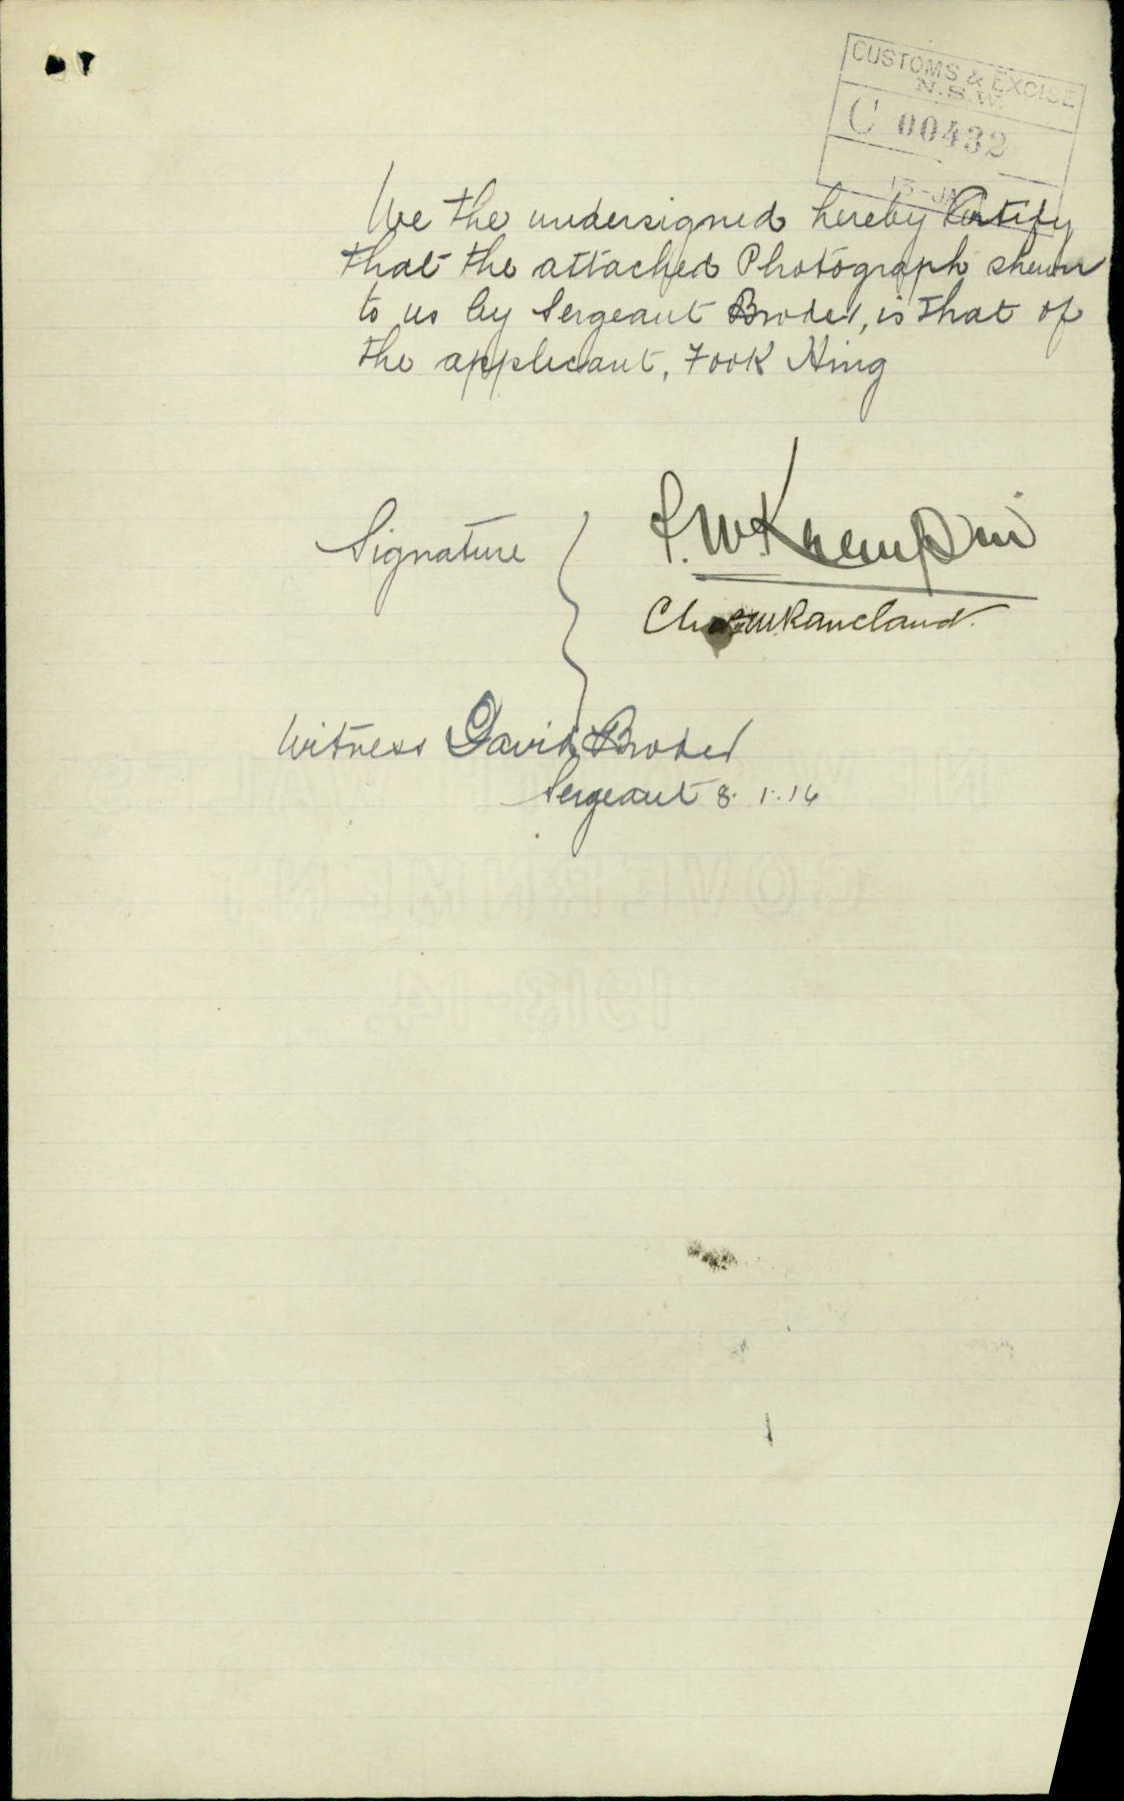 CUSTOMS & EXCISE
N.S.W.
C 00432
13-JA
We the undersigned hereby Certify
that the attached Photograph shewn
to us by Sergeant Broder, is that of
the applicant, Fook Hing
Signature
Witness David Broder
Sergeant 8.1.16
NEW
GOVERNMENT
1913-14